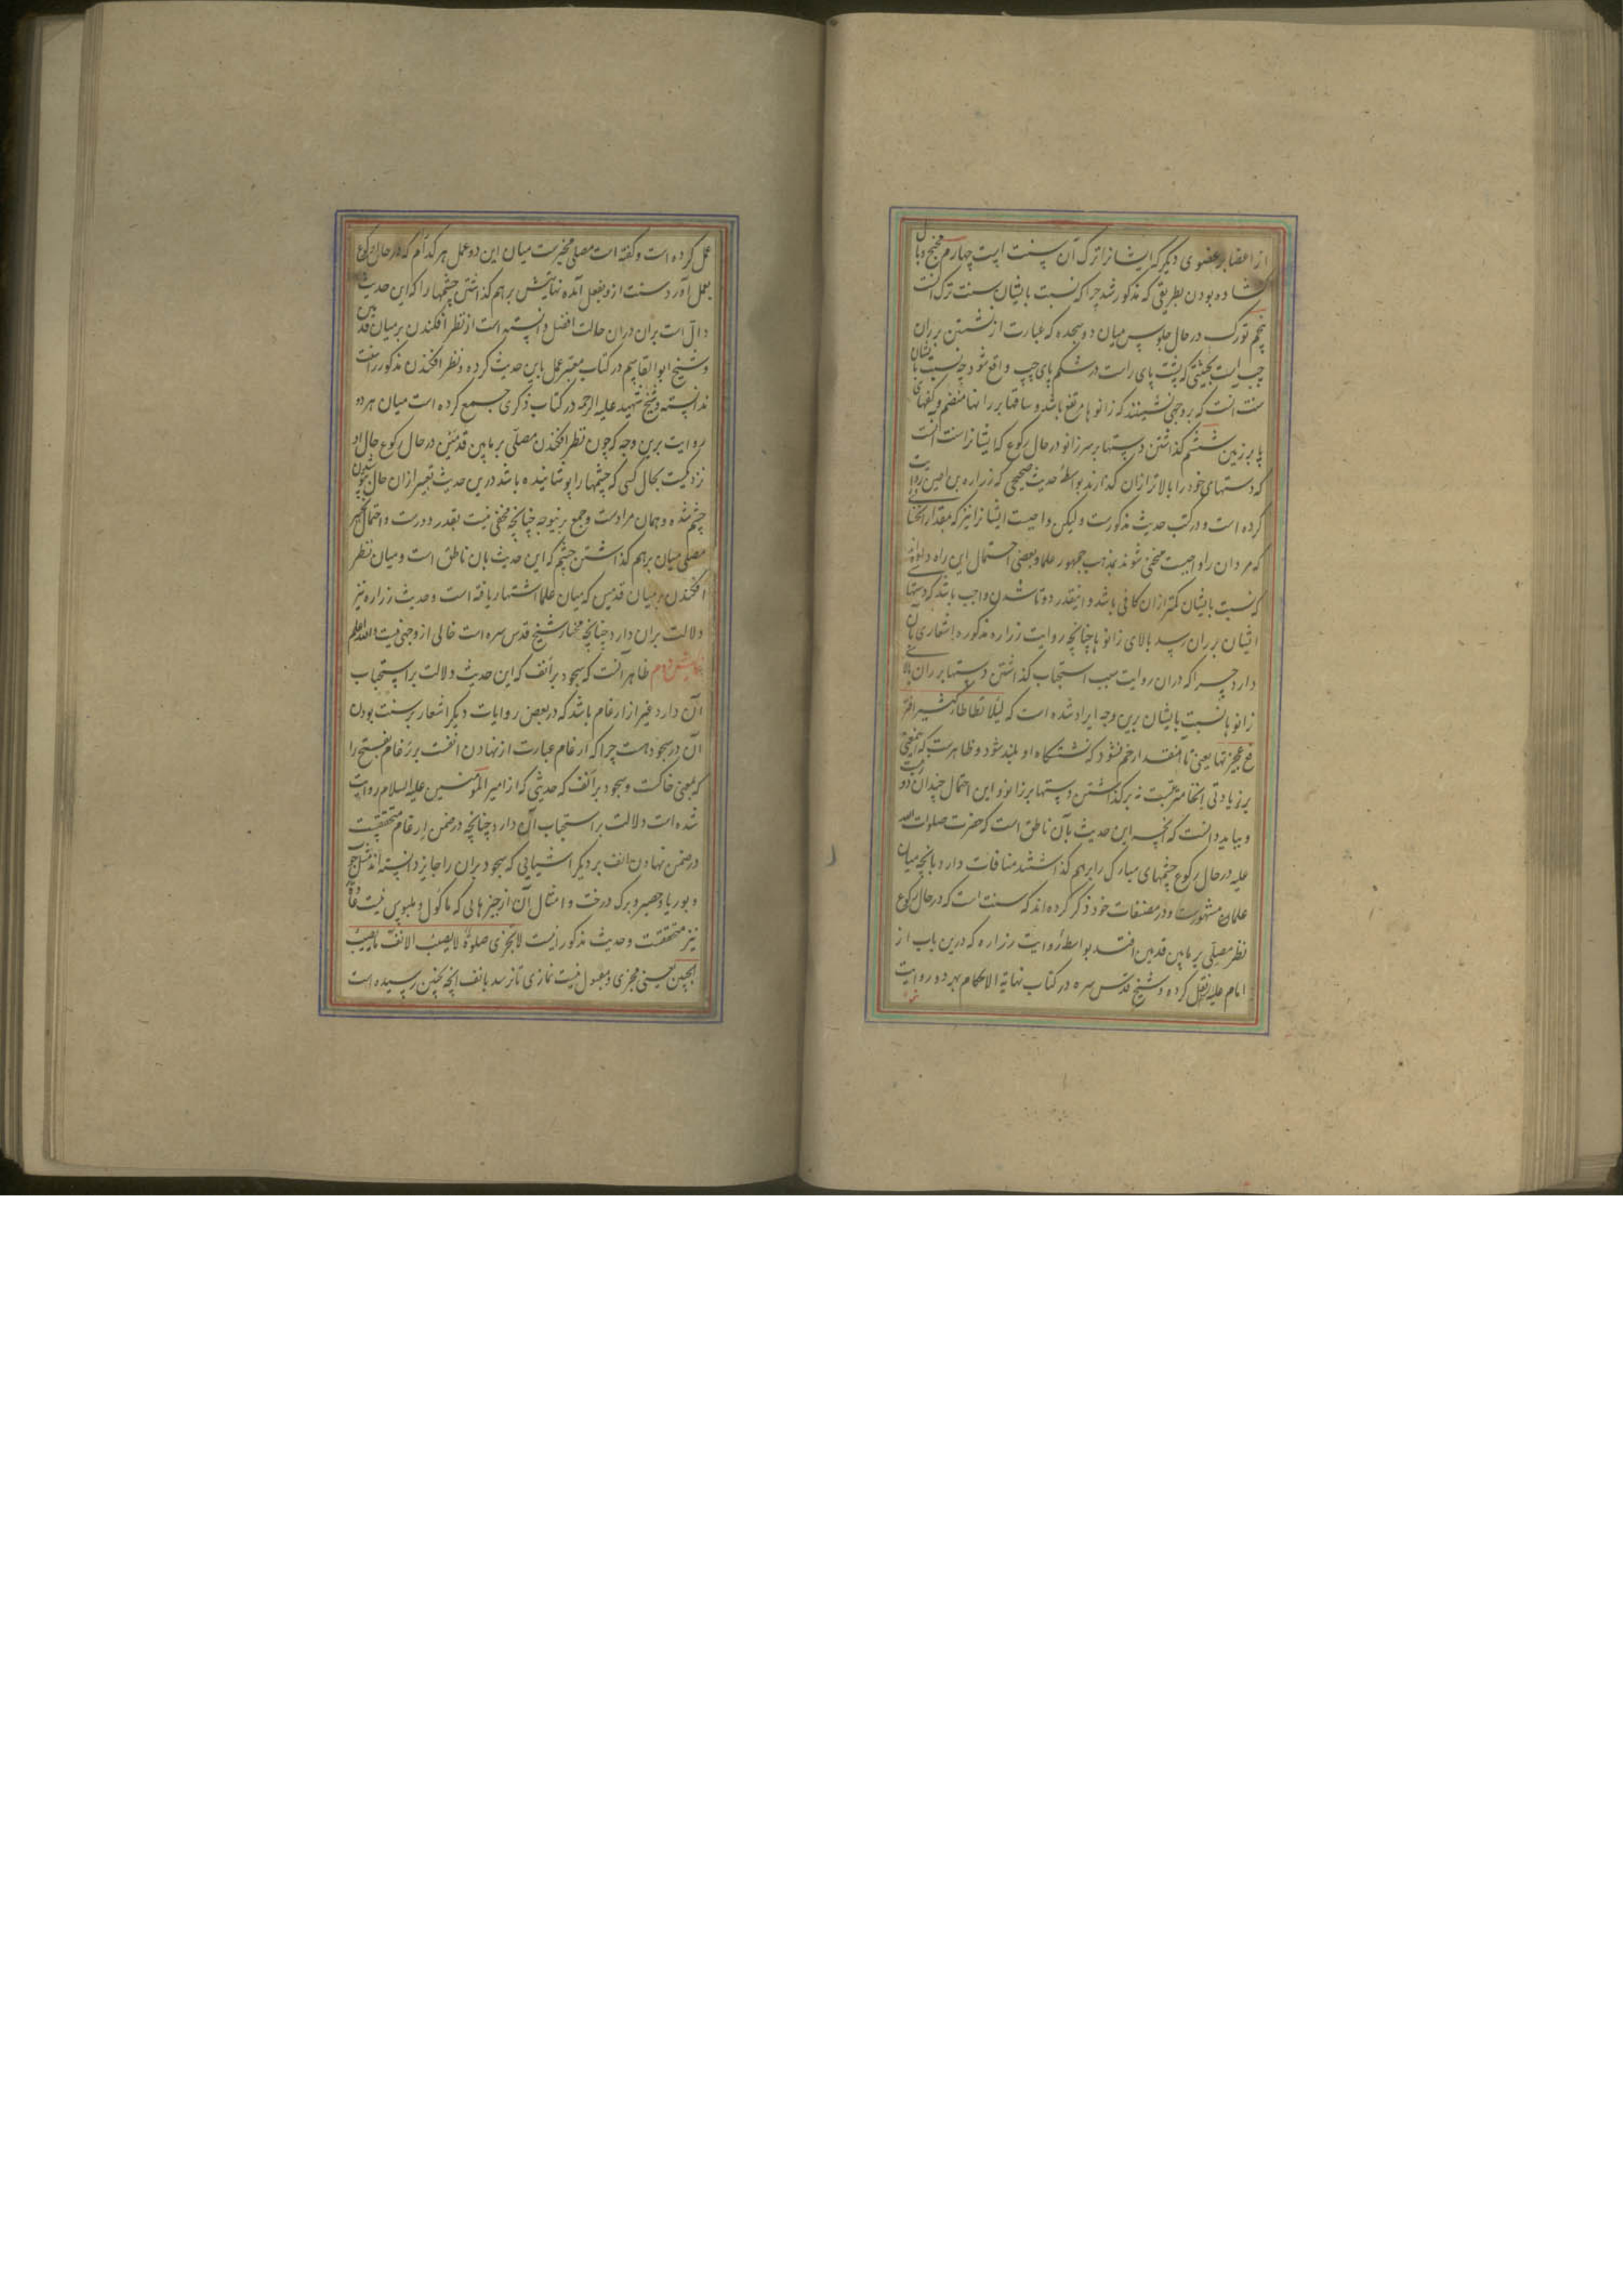 از اعضا بر عضوی دیگر که ایشانرا ترک آن سنت است چهارم مجنح و بال
گشاده بودن بطریقی که مذکور شد چرا که نسبت بایشان سنت ترک آنست
پنجم تورک در حال جلوس میان دو سجده که عبارت از نشستن بر ران
چپ است بحیثیتی که پشت پای راست در شکم پای چپ واقع شود چه نسبت بایشان
سنت آنست که بر وجهی نشینند که زانوها مرتفع باشد و ساقها بر رانها منضم و کفهای
پا بر زمین ششم گذاشتن دستها بر سر زانو در حال رکوع که ایشانرا سنت آنست
که دستهای خود را بالاتر از آن گذارند بواسطهٔ حدیث صحیحی که زراره بن اعین روایت
کرده است و در کتب حدیث مذکورست و لیکن واجبست ایشانرا نیز که مقدار انحنائی
که مردان را واجبست منحنی شوند بمذهب جمهور علما و بعضی احتمال این راه داده‌اند
که نسبت بایشان کمتر از آن کافی باشد و اینقدر دوتا شدن واجب باشد که دستهای
ایشان بر ران رسد بالای زانوها چنانچه روایت زراره مذکوره اشعاری بآن
دارد چرا که در آن روایت سبب استحباب گذاشتن دستها بر ران بالای
زانوها نسبت بایشان برین وجه ایراد شده است که لئلا تطاطا کثیرا فتر
فع عجیزتها یعنی تا آنقدر خم نشود که نشستگاه او بلند شود و ظاهرست که این معنی
بر زیادتی انحنا مترتبست نه بر گذاشتن دستها بر زانو و این احتمال چندان دور نیست
و بباید دانست که آنچه این حدیث بآن ناطق است که حضرت صلوات الله
علیه در حال رکوع چشمهای مبارک را بر هم گذاشتند منافات دارد بآنچه میان
علما مشهورست و در مصنفات خود ذکر کرده‌اند که سنت است که در حال رکوع
نظر مصلی بر مابین قدمین افتد بواسطهٔ روایت زراره که درین باب از
امام علیه نقل کرده و شیخ قدس سره در کتاب نهایة الاحکام بهر دو روایت
عمل کرده است و گفته است مصلی مخیرست میان این دو عمل هر کدام که در حال رکوع
بعمل آورد سنت از و بفعل آمده نهایتش بر هم گذاشتن چشمها را که این حدیث
دال است بر آن در آن حالت افضل دانسته است از نظر افکندن بر میان قدمین
و شیخ ابوالقاسم در کتاب معتبر عمل باین حدیث کرده و نظر افکندن مذکور را سنت
ندانسته و شیخ شهید علیه الرحمه در کتاب ذکری جمع کرده است میان هر دو
روایت برین وجه که چون نظر افکندن مصلی بر مابین قدمین در حال رکوع حال او
نزدیکست بحال کسی که چشمها را پوشانیده باشد درین حدیث تعبیر از آن حال بپوشیدن
چشم شده و همان مرادست و جمع برینوجه چنانچه مخفی نیست بقدر دورست و احتمال تخییر
مصلی میان بر هم گذاشتن چشم که این حدیث بآن ناطق است و میان نظر
افکندن بر میان قدمین که میان علما اشتهار یافته است و حدیث زراره نیز
دلالت بر آن دارد چنانچه مختار شیخ قدس سره است خالی از وجهی نیست والله اعلم
ظاهر آنست که سجود بر انف که این حدیث دلالت بر استحباب
آن دارد غیر از ارغام باشد که در بعض روایات دیگر اشعار بر سنت بودن
آن در سجود هست چرا که ارغام عبارت از نهادن انفست بر رغام بفتح را
که بمعنی خاکست و سجود بر انف که حدیثی که از امیر المؤمنین علیه السلام روایت
شده است دلالت بر استحباب آن دارد چنانچه در ضمن ارغام متحققست
در ضمن نهادن انف بر دیگر اشیایی که سجود بر آن را جایز دانسته‌اند مثل چوب
و بوریا و حصیر و برگ درخت و امثال آن از چیزهایی که ماکول و ملبوس نیست عادة
نیز متحققست و حدیث مذکور اینست لا تجزی صلوة لا یصیب الانف ما یصیب
الجبین یعنی مجزی و مقبول نیست نمازی تا نرسد بانف آنچه بجبین رسیده است